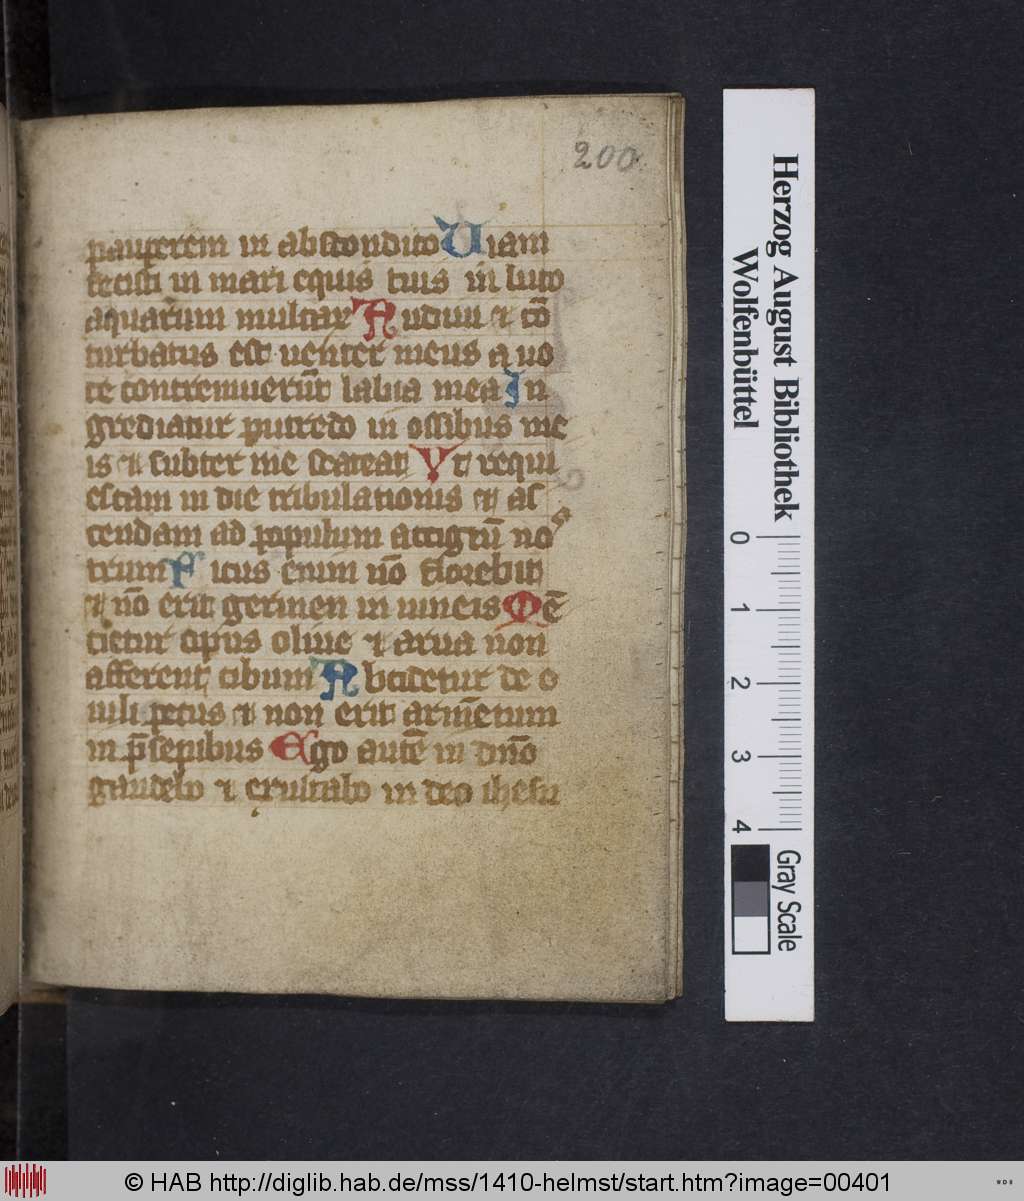 200
pauperem in abscondito Uiam
fecisti in mari equis tuis in luto
aquarum multar Audiui et cō
turbatus est uenter meus a uo
ce contremuerūt labia mea In
grediatur putredo in ossibus me
is et subter me scateat Vt requi
escam in die tribulationis et as
cendam ad populum accigtū nos
trum Ficus enim nō florebit
et nō erit germen in uineis Mē
tietur opus oliue et arua non
afferent cibum Abcidetur de o
uili pecus et non erit armētum
in p̄sepibus Ego autē in dn̄o
gaudebo et exultabo in deo ihesu
Herzog August Bibliothek
Wolfenbüttel
0 1 2 3 4
Gray Scale
© HAB http://diglib.hab.de/mss/1410-helmst/start.htm?image=00401